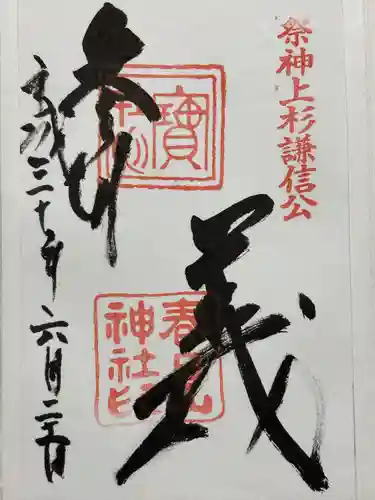 祭神上杉謙信公
義
春日山
神社印
平成三十年六月二十六日